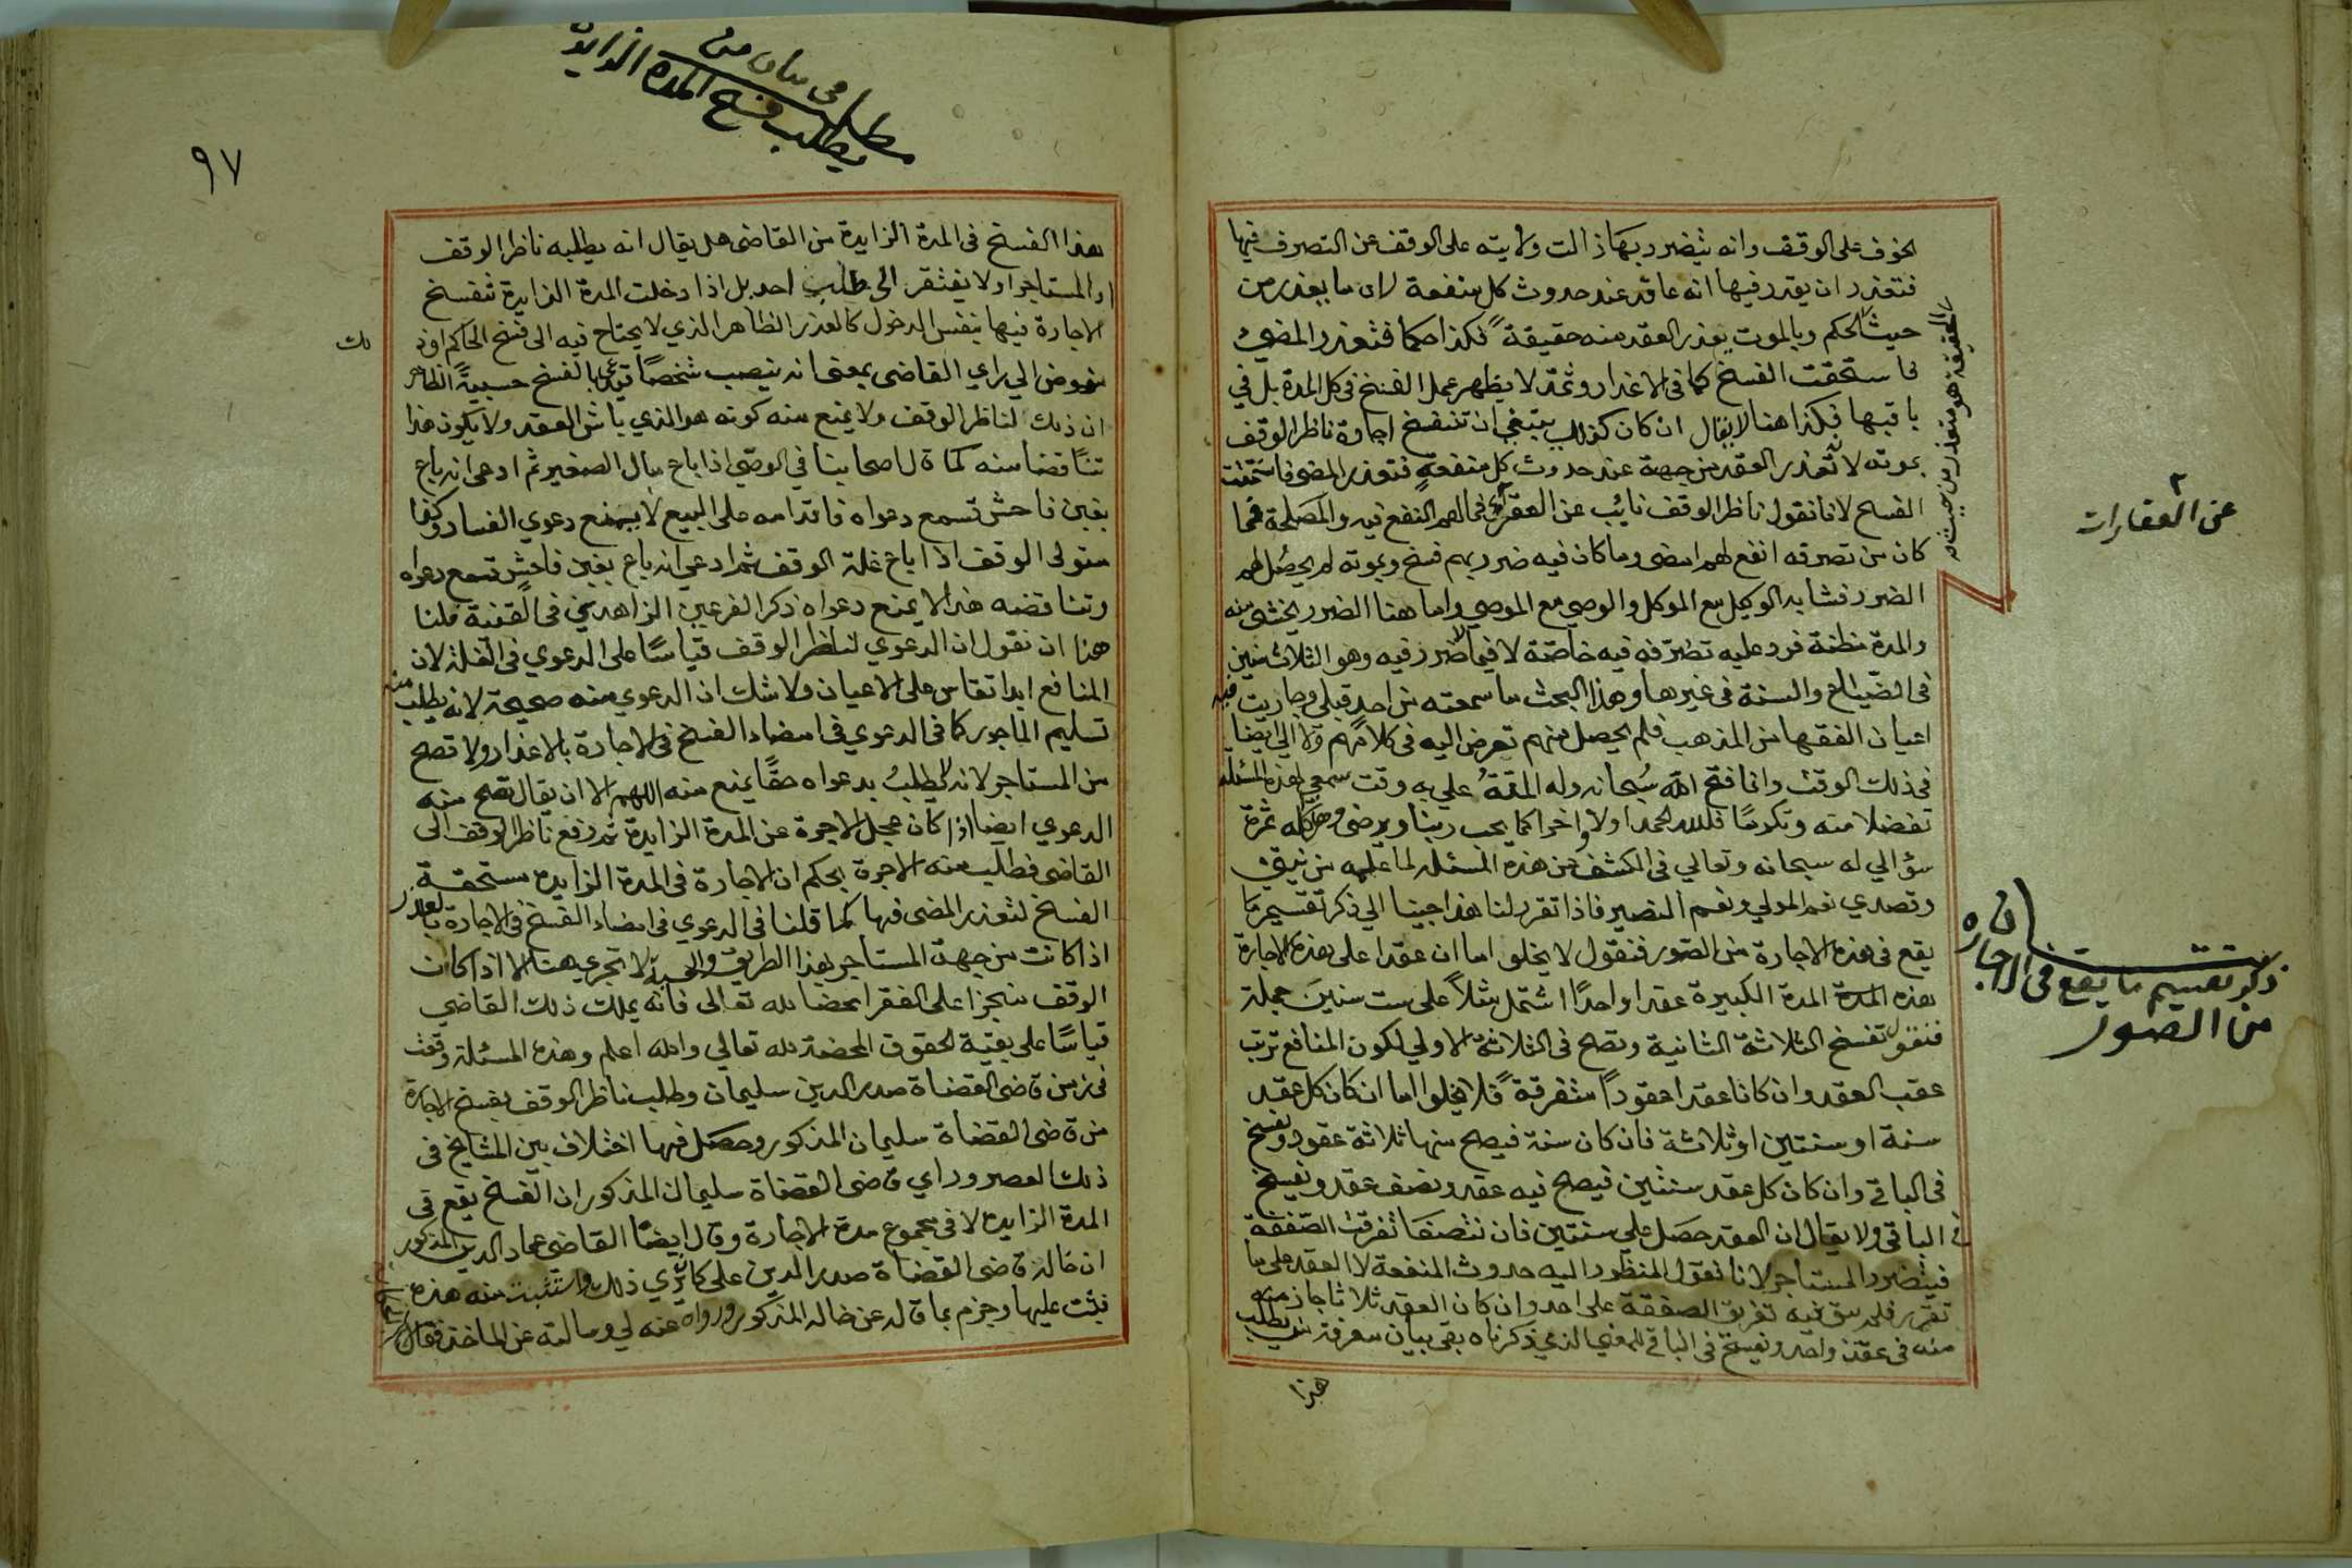 الخوف على الوقف وانه يتضرر بها زالت ولايته على الوقف عن التصرف فيها
فتعذر ان يقدر فيها انه عاقد عند حدوث كل منفعة لان ما يعذر من
حيث الحكم وبالموت يعذر العقد منه حقيقة فكذا حكما فتعذر المضي
فاستحقت الفسخ كما في الاعذار وثمة لا يظهر عمل الفسخ في كل المدة بل في
باقيها فكذا هنا لا يقال ان كان كذلك ينبغي ان تنفسخ اجارة ناظر الوقف
بموته لانه تعذر العقد من جهة عند حدوث كل منفعة فتعذر المضي فاستحقت
الفسخ لانا نقول ناظر الوقف نائب عن الفقراء في المهم النفع فيه والمصلحة فما
كان من تصرفه انفع لهم امضى وما كان فيه ضرر بهم فسخ وبموته لم يحصل لهم
الضرر فشابه الوكيل مع الموكل والوصي مع الموصي واما هنا الضرر يخشى منه
والمدة مظنة فرد عليه تصرفه فيه خاصة لا فيما لا ضرر فيه وهو الثلاث سنين
في الضياع والسنة في غيرها وهذا البحث ما سمعته من احد قبلي وجاريت فيه
اعيان الفقها من المذهب فلم يحصل منهم تعرض اليه في كلامهم ولا الي ايضا
في ذلك الوقت وانما فتح الله سبحانه وله المنة علي به وقت سمعي لهذه المسئلة
تفضلا منه وتكرما فلله الحمد اولا واخرا كما يحب ربنا ويرضى وهو كله ثمرة
سؤالي له سبحانه وتعالي في الكشف عن هذه المسئله لما علمه من نيتي
وقصدي نعم المولي ونعم النصير فاذا تقرر لنا هذا جينا الي ذكر تقسيم ما
يقع في هذه الاجارة من الصور فنقول لا يخلو اما ان عقدا على هذه الاجارة
بهذه المدة المدة الكبيرة عقدا واحدا اشتمل مثلا على ست سنين جملة
فنقول تفسخ الثلاثة الثانية وتصح في الثلاثة الاولي لكون المنافع ترتب
عقب العقد وان كانا عقدا عقودا متفرقة فلا يخلوا اما ان كان كل عقد
سنة او سنتين او ثلاثة فان كان سنة فيصح منها ثلاثة عقود وتفسخ
في الباقي وان كان كل عقد سنتين فيصح فيه عقد ونصف عقد وتفسخ
في الباقي ولا يقال ان العقد حصل علي سنتين فان نتصفها تفرقت الصفقة
فيتضرر المستاجر لانا نقول المنظور اليه حدوث المنفعة لا العقد على ما
تقرر فلم يبق فيه تفريق الصفقة على احد وان كان العقد ثلاثا جاز منه
منه في عقد واحد وتفسخ في الباقي للمعني الذي ذكرناه بقي بيان معرفة من يطلب
هذا
الحقيقة هو متعذر من حيث
عن العقارات
ذكر تقسيم ما يقع في الاجاره
من الصور
مطلب في بيان من
يطلب فسخ المدة الزايدة
٩٧
هذا الفسخ في المدة الزايدة من القاضي هل يقال انه يطلبه ناظر الوقف
او المستاجر او لا يفتقر الى طلب احد بل اذا دخلت المدة الزايدة تنفسخ
الاجارة فيها بنفس الدخول كالعذر الظاهر الذي لا يحتاج فيه الى فسخ الحاكم او
مفوض الي راي القاضي بمعنى انه ينصب شخصا يدعي بالفسخ حسبية الظاهر
ان ذلك لناظر الوقف ولا يمنع منه كونه هو الذي باشر العقد ولا يكون هذا
تناقضا منه كما قال اصحابنا في الوصي اذا باع مال الصغير ثم ادعى انه باع
بغبن فاحش تسمع دعواه فاقدامه على البيع لا يمنع دعوي الفساد وكذا
متولى الوقف اذا باع غلة الوقف ثم ادعي انه باع بغبن فاحش تسمع دعواه
وتناقضه هذا لا يمنع دعواه ذكر الفرعين الزاهدي في القنية فلنا
هنا ان نقول ان الدعوي لناظر الوقف قياسا على الدعوي في الغلة لان
المنافع ابدا تقاس على الاعيان ولا شك ان الدعوي منه صحيحة لانه يطلب منه
تسليم الماجور كما في الدعوي في امضاء الفسخ في الاجارة بالاعذار ولا تصح
من المستاجر لانه لا يطلب بدعواه حقا يمنع منه اللهم الا ان يقال تصح منه
الدعوي ايضا اذا كان عجل الاجرة عن المدة الزايدة ثم رفع ناظر الوقف الى
القاضي فطلب منه الاجرة بحكم ان الاجارة في المدة الزايدة مستحقة
الفسخ لتعذر المضي فيها كما قلنا في الدعوي في امضاء الفسخ في الاجارة بالعذر
اذا كانت من جهة المستاجر بهذا الطريق والحسبة لا تجري هنا الا اذا كان
الوقف منجزا على الفقرا محضا لله تعالى فانه يملك ذلك القاضي
قياسا على بقية الحقوق المحضة لله تعالي والله اعلم وهذه المسئلة وقعت
في زمن قاضي القضاة صدر الدين سليمان وطلب ناظر الوقف بفسخ الاجارة
من قاضي القضاة سليمان المذكور وحصل فيها اختلاف بين المشايخ في
ذلك العصر وراي قاضي القضاة سليمان المذكور ان الفسخ يقع في
المدة الزايدة لا في مجموع مدة الاجارة وقال ايضا القاضي عماد الدين المذكور
ان خاله قاضي القضاة صدر الدين علي كان يري ذلك واستثبت منه هذه
فثبت عليها وجزم بما قاله عن خاله المذكور ورواه عنه لي وسالته عن الماخذ فقال